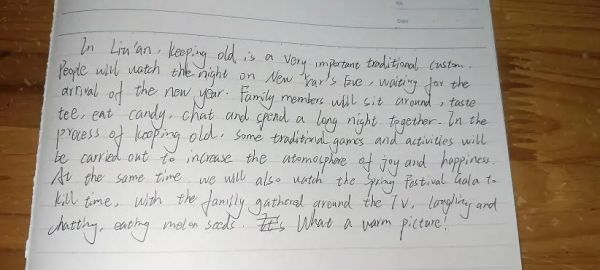 No.
Date
In Liu'an, keeping old is a very important traditional custom.
People will watch the night on New Year's Eve, waiting for the
arrival of the new year. Family members will sit around, taste
tee, eat candy, chat and spend a long night together. In the
process of keeping old, some traditional games and activities will
be carried out to increase the atomosphere of joy and happiness.
At the same time, we will also watch the Spring Festival Gala to
kill time, with the family gathered around the TV, laughing and
chatting, eating melon seeds. What a warm picture!